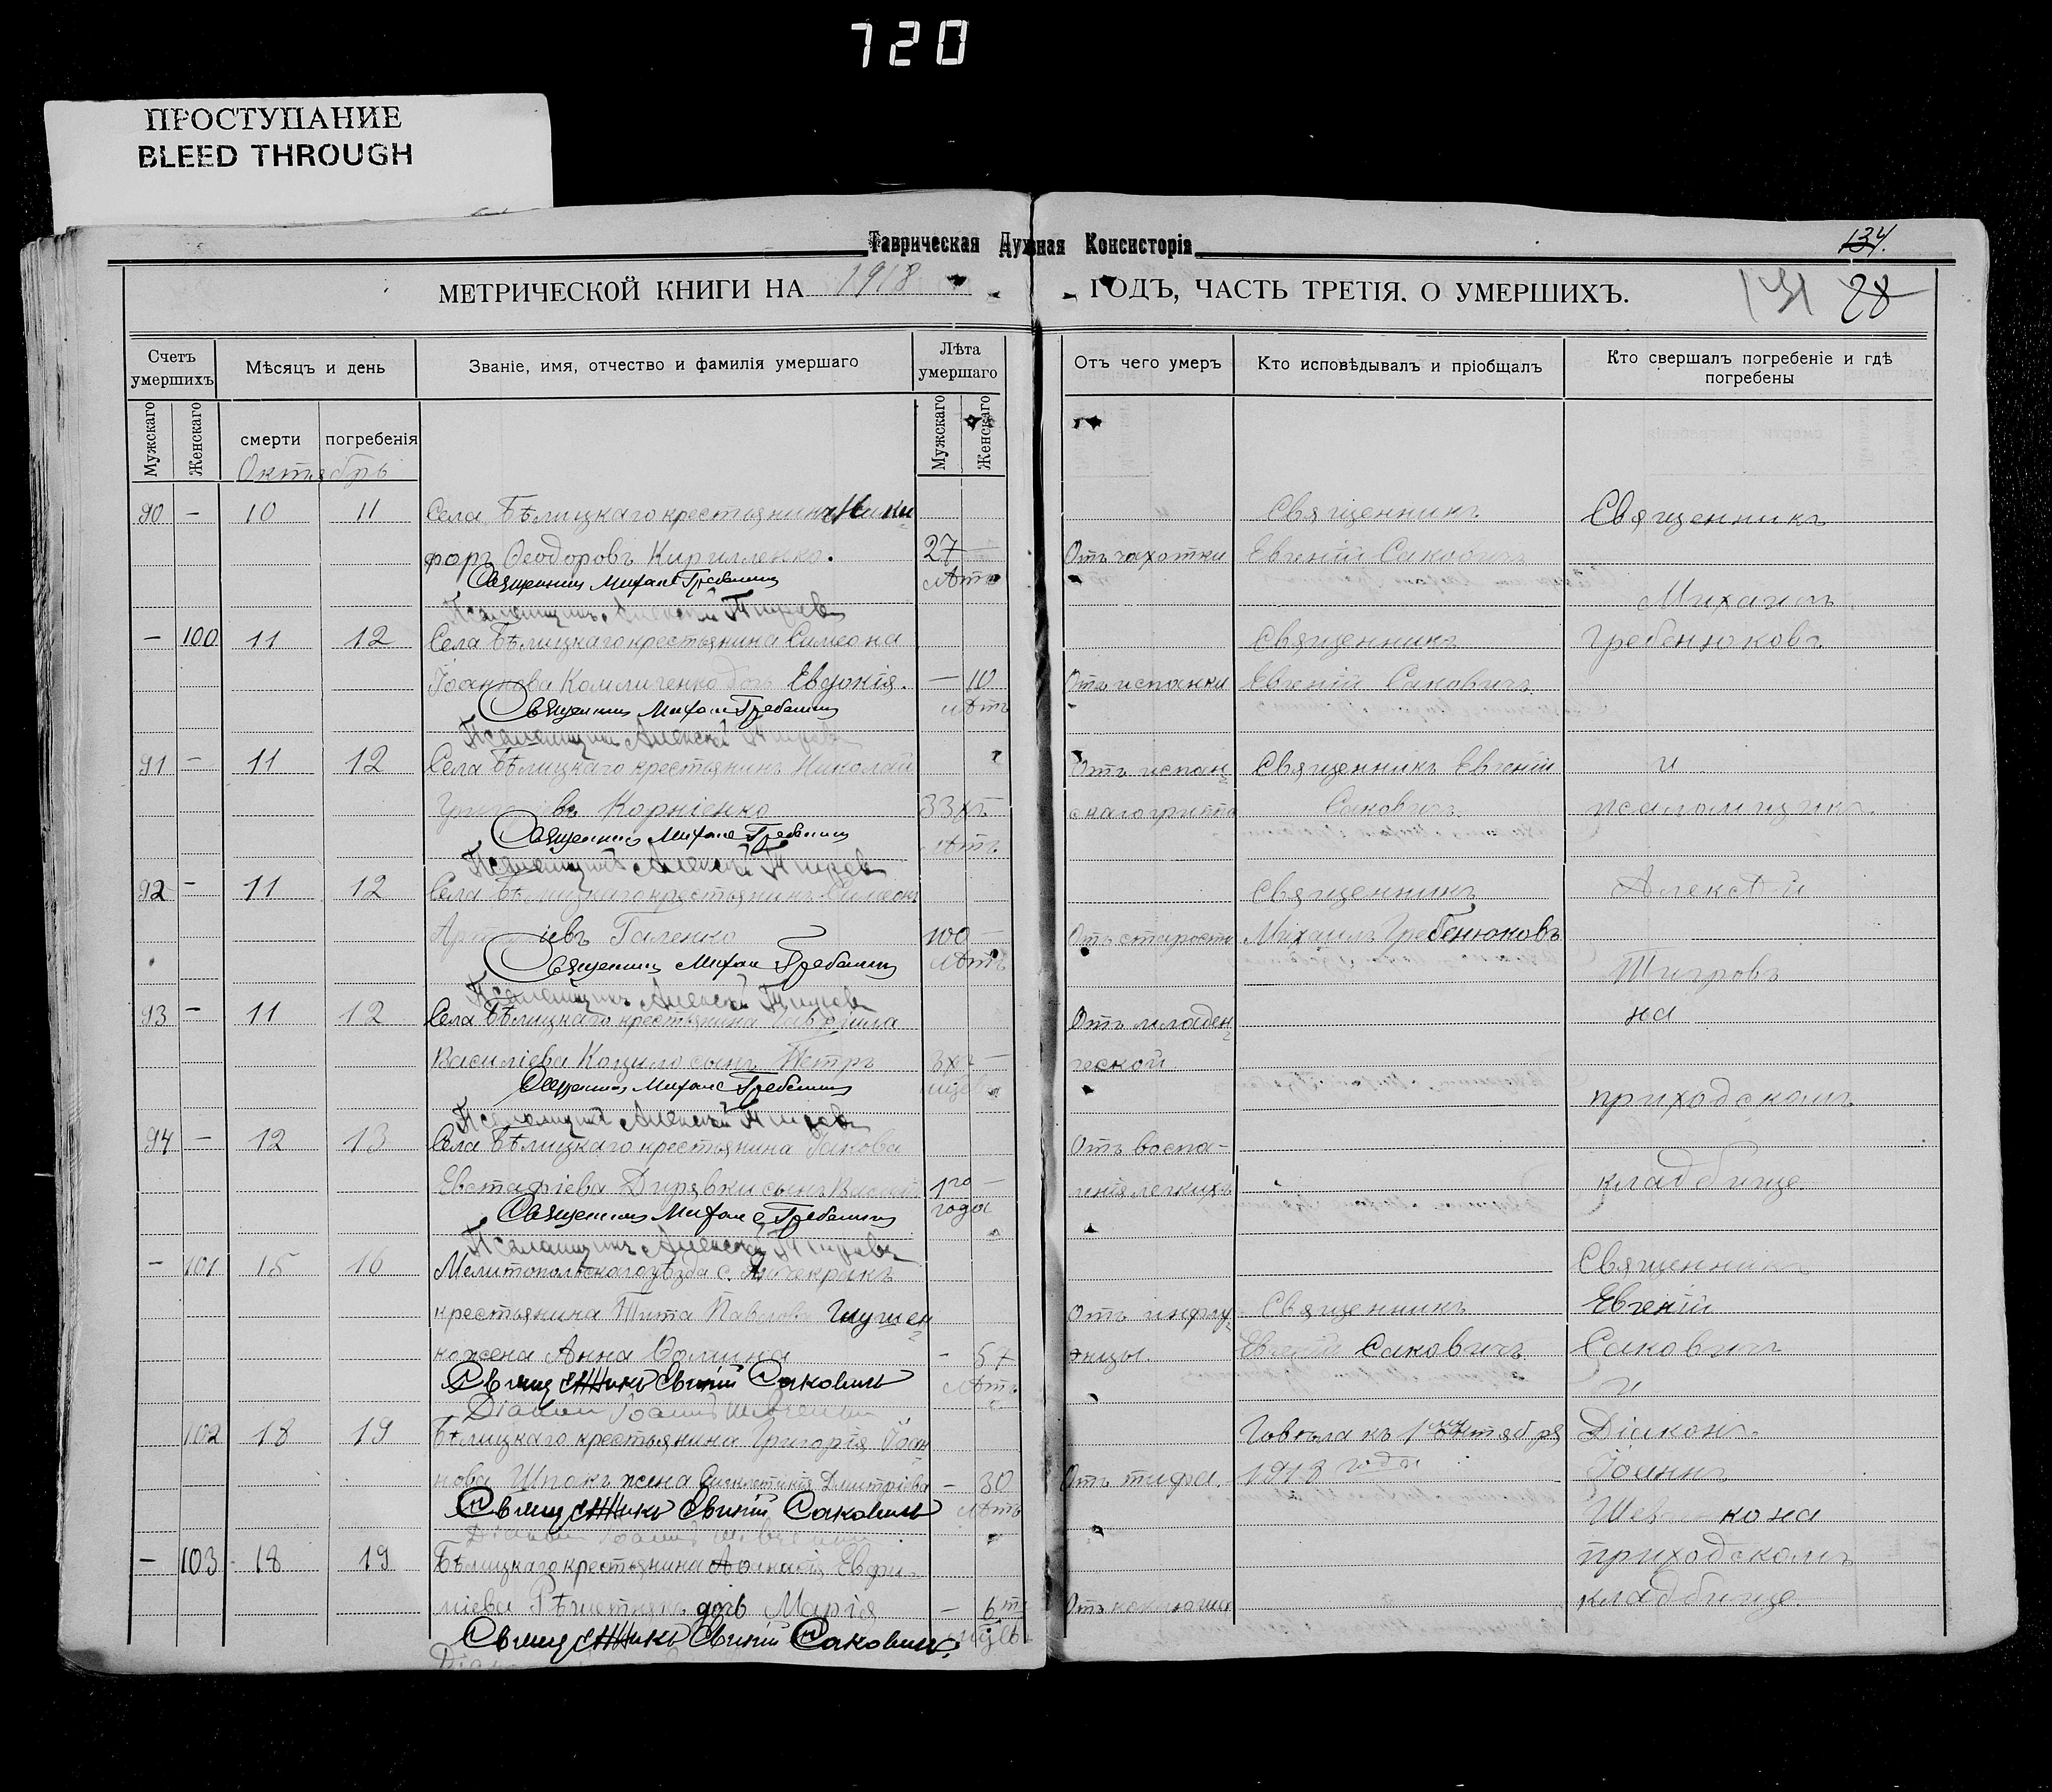 720
ПРОСТУПАНИЕ
BLEED THROUGH
Таврическая Духовная Консисторія
134.
МЕТРИЧЕСКОЙ КНИГИ НА 1918 ГОДЪ, ЧАСТЬ ТРЕТІЯ. О УМЕРШИХЪ.
131 28
Счетъ умершихъ
Мѣсяцъ и день
Званіе, имя, отчество и фамилія умершаго
Лѣта умершаго
Отъ чего умеръ
Кто исповѣдывалъ и пріобщалъ
Кто свершалъ погребеніе и гдѣ погребены
Мужскаго
Женскаго
смерти
погребенія
Мужскаго
Женскаго
Октябрь
90 — 10 11 Села Бѣлицкаго крестьянинъ Ники- Священникъ Священникъ
форъ Ѳеодоровъ Кириленко. 27 — Отъ чахотки Евгеній Саковичъ
Священникъ Михаилъ Гребенюковъ лѣтъ
Михаилъ
Псаломщикъ Алексѣй Тигровъ
— 100 11 12 Села Бѣлицкаго крестьянина Симеона Священникъ Гребенюковъ
Іоаннова дочь Евдокія. — 10 Отъ испанки Евгеній Саковичъ.
Священникъ Михаилъ Гребенюковъ лѣтъ
Псаломщикъ Алексѣй Тигровъ
91 — 11 12 Села Бѣлицкаго крестьянинъ Николай Отъ испан- Священникъ Евгеній и
Корніенко 33хъ скаго гриппа Саковичъ. псаломщикъ
Священникъ Михаилъ Гребенюковъ лѣтъ
Псаломщикъ Алексѣй Тигровъ
92 — 11 12 Села Бѣлицкаго крестьянинъ Симеонъ Священникъ Алексѣй
Галенко 100 — Отъ старости Михаилъ Гребенюковъ
Священникъ Михаилъ Гребенюковъ лѣтъ Тигровъ
Псаломщикъ Алексѣй Тигровъ
93 — 11 12 Села Бѣлицкаго крестьянина Гавріила Отъ младен- на
Василіева Коцило сынъ Петръ 3хъ — ческой
Священникъ Михаилъ Гребенюковъ приходскомъ
Псаломщикъ Алексѣй Тигровъ
94 — 12 13 Села Бѣлицкаго крестьянина Іакова Отъ воспа-
Евстафіева Дирявки сынъ Василій 1го — ленія легкихъ кладбище
Священникъ Михаилъ Гребенюковъ года
Псаломщикъ Алексѣй Тигровъ
— 101 15 16 Мелитопольскаго уѣзда с. Священникъ
крестьянина Тита Павлова Глушен- Отъ инфлу- Священникъ Евгеній
ко жена Анна — 57 энцы. Евгеній Саковичъ Саковичъ
Священникъ Евгеній Саковичъ лѣтъ и
Діаконъ Іоаннъ Шевченко
102 18 19 Бѣлицкаго крестьянина Григорія Іоан- Говѣла къ 1 октября Діаконъ
нова Шпакъ жена Дмитріева — 30 Отъ тифа. 1918 года Іоаннъ
Священникъ Евгеній Саковичъ лѣтъ Шевченко на
Діаконъ Іоаннъ Шевченко
— 103 18 19 Бѣлицкаго крестьянина Аѳанасія Евфи- приходскомъ
міева дочь Марія — 6ти Отъ коклюша кладбище
Священникъ Евгеній Саковичъ.